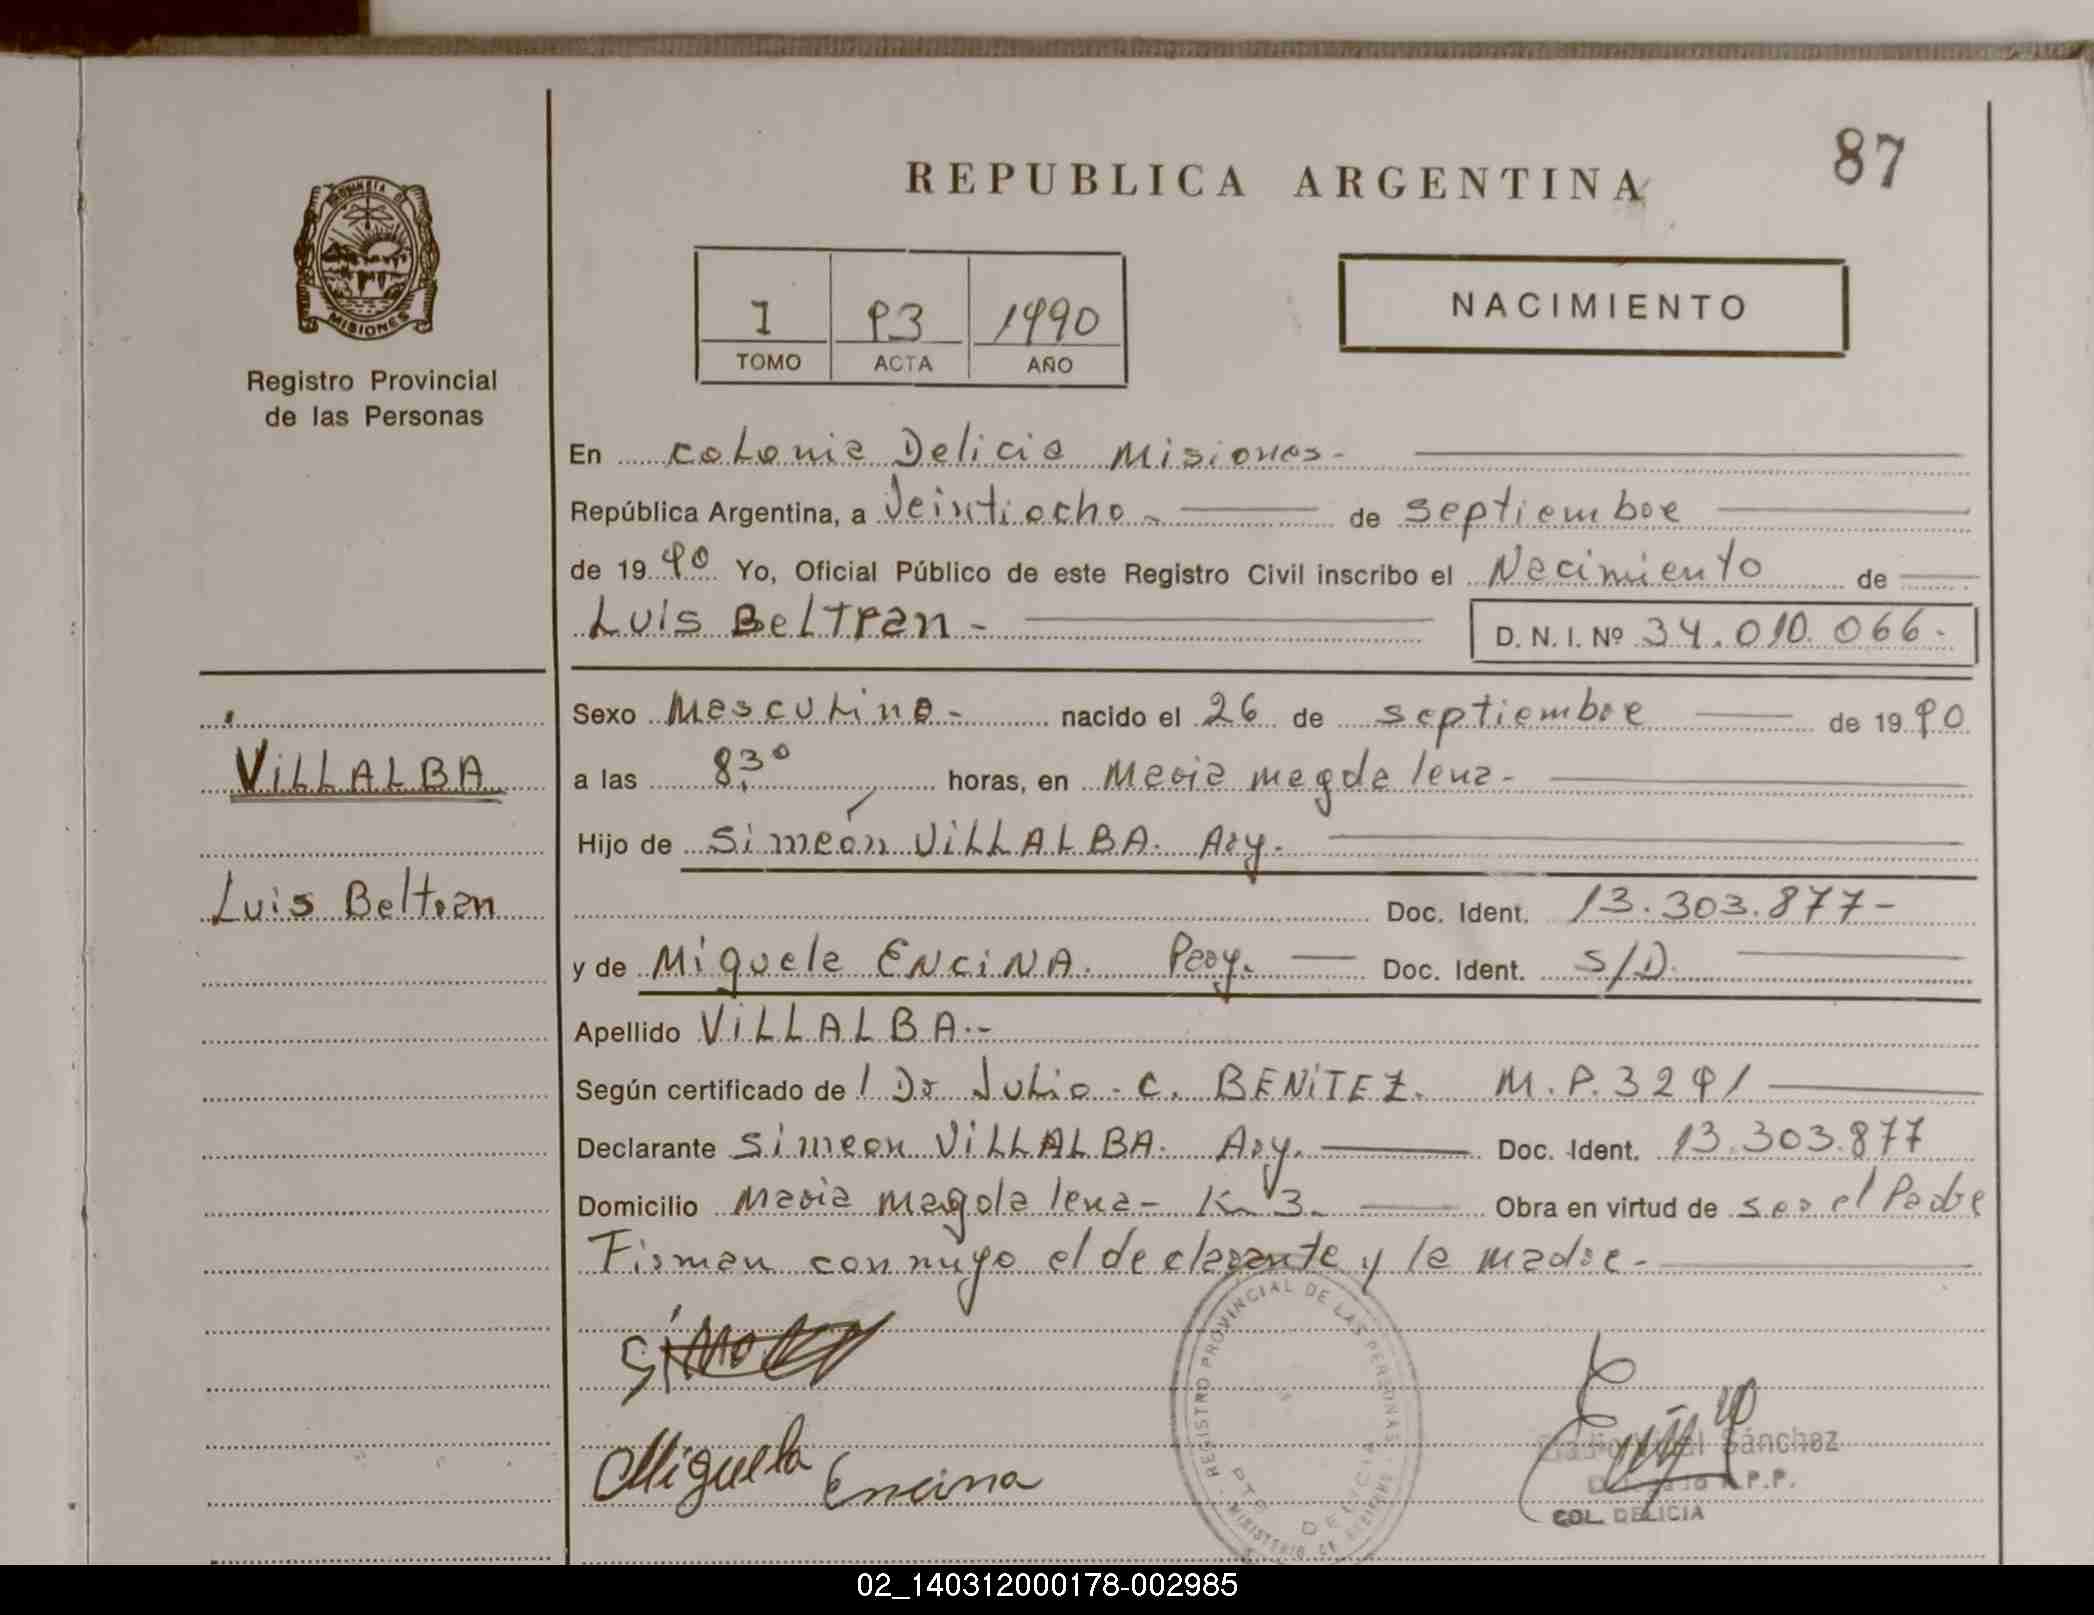 87
REPUBLICA ARGENTINA
PROVINCIA DE
MISIONES
Registro Provincial
de las Personas
I 93 1990
TOMO ACTA AÑO
NACIMIENTO
En Colonia Delicia Misiones-
República Argentina, a Veintiocho- de septiembre
de 1990 Yo, Oficial Público de este Registro Civil inscribo el Nacimiento de
Luis Beltran- D. N. I. Nº 34.010.066-
VILLALBA
Luis Beltran
Sexo Masculino- nacido el 26 de septiembre de 1990
a las 8,30 horas, en Maria magdalena-
Hijo de Simeón VILLALBA. Arg.
Doc. Ident. 13.303.877-
y de Miguela ENCINA. Parg. Doc. Ident. S/D.
Apellido VILLALBA.-
Según certificado de l Dr Julio. C. BENITEZ. M.P.3291
Declarante Simeon VILLALBA. Arg. Doc. Ident. 13.303.877
Domicilio Maria magdalena- Km 3. Obra en virtud de ser el Padre
Firman conmigo el declarante y la madre-
Miguela Encina
REGISTRO PROVINCIAL DE LAS PERSONAS
PTO DELICIA
MINISTERIO DE GOBIERNO
Sánchez
R.P.P.
COL. DELICIA
02_140312000178-002985